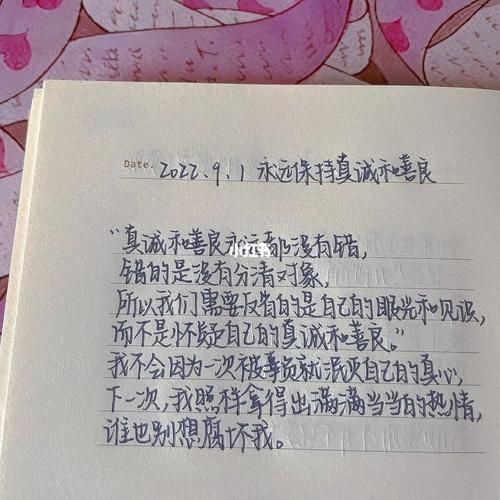 Date. 2022.9.1 永远保持真诚和善良
"真诚和善良永远都没有错,
错的是没有分清对象,
所以我们需要反省的是自己的眼光和见识,
而不是怀疑自己的真诚和善良。"
我不会因为一次被辜负就泯灭自己的真心,
下一次,我照样拿得出满满当当的热情,
谁也别想腐坏我。
小红书